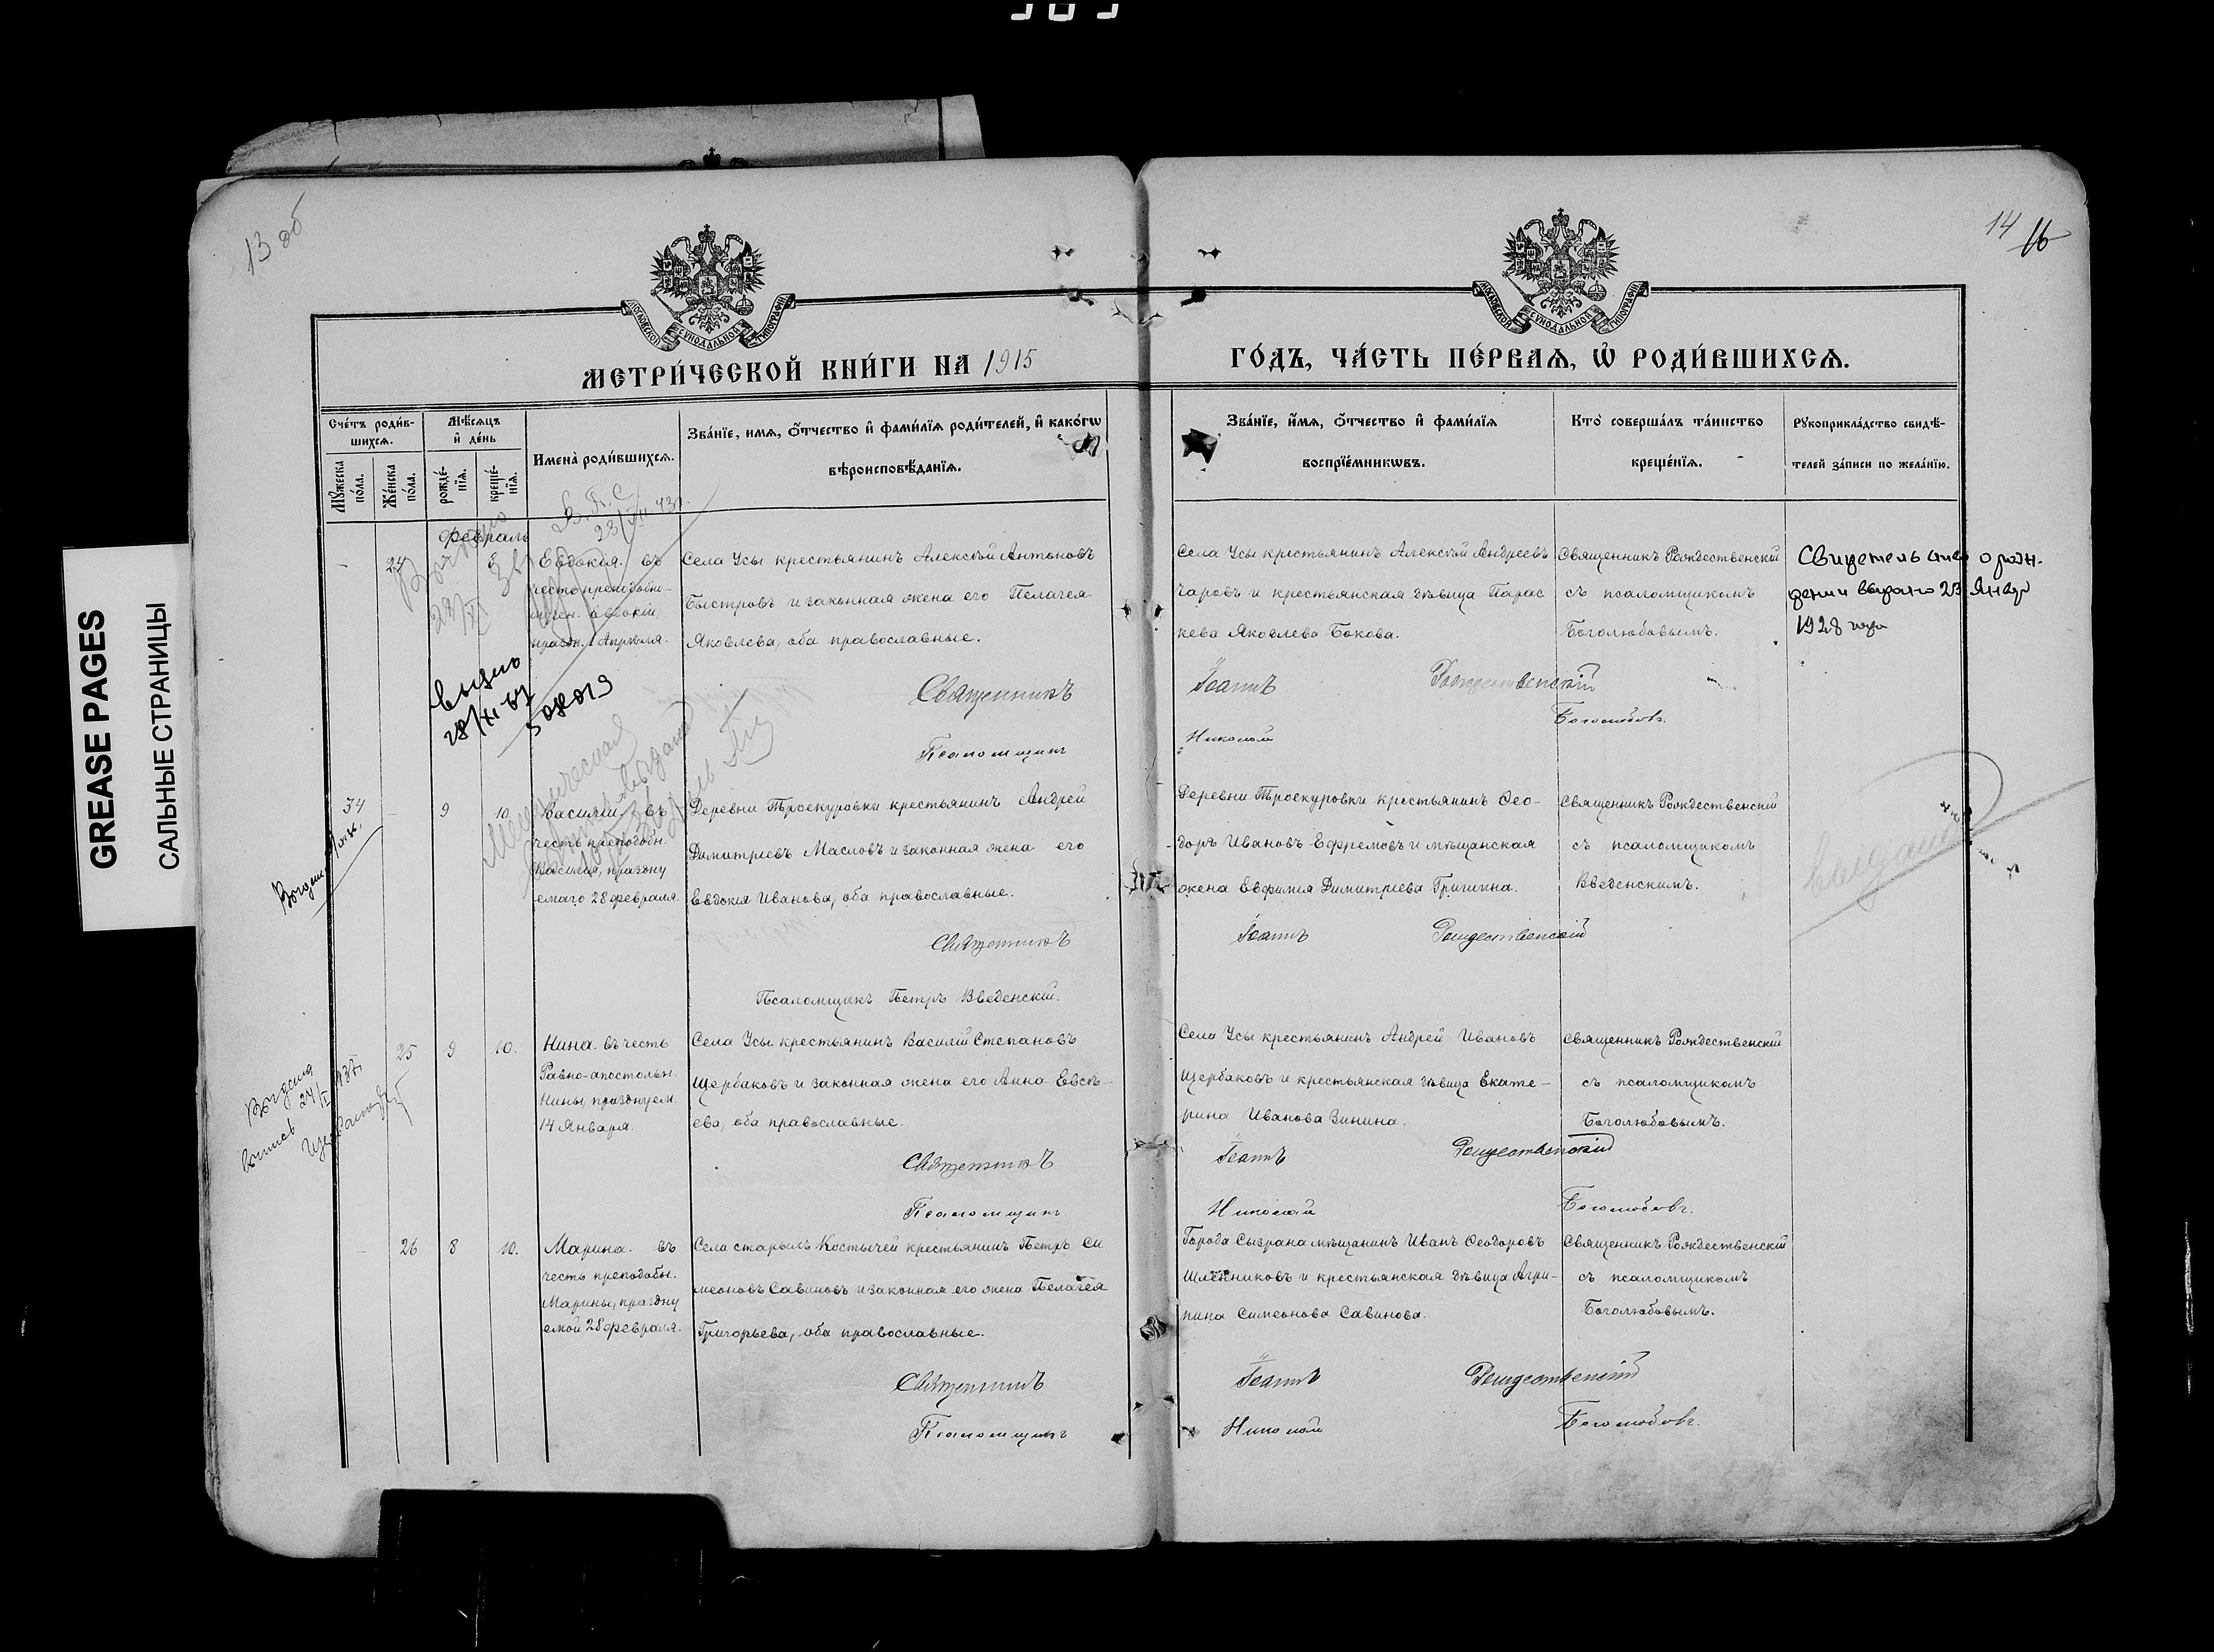 GREASE PAGES
САЛЬНЫЕ СТРАНИЦЫ
13 об
14 16
МОСКОВСКОЙ СѴНОДАЛЬНОЙ ТИПОГРАФІИ
МОСКОВСКОЙ СѴНОДАЛЬНОЙ ТИПОГРАФІИ
МЕТРИ́ЧЕСКОЙ КНИ́ГИ НА 1915
ГО́ДЪ, ЧА́СТЬ ПЕ́РВАѦ, Ѡ҆ РОДИ́ВШИХСѦ.
Сче́тъ роди́в-
шихсѧ.
Мꙋ́жеска по́ла.
Же́нска по́ла.
Мѣ́сѧцъ
и҆ де́нь
рожде́-
нїѧ.
креще́-
нїѧ.
Имена̀ роди́вшихсѧ.
Зва́нїе, имѧ, ѻ҆́тчество и҆ фами́лїѧ роди́телей, и҆ како́гѡ
вѣроисповѣ́данїѧ.
Зва́нїе, и҆́мѧ, ѻ҆́тчество и҆ фами́лїѧ
воспрїе́мникѡвъ.
Кто̀ соверша́лъ та́инство
креще́нїѧ.
Рꙋкоприкла́дство свидѣ́-
телей за́писи по жела́нїю.
февраль
- 24
Евдокія. въ
честь преподобно-
мучен. Евдокіи,
праздн. 1 Апрѣля.
Села Усы крестьянинъ Алексѣй Антоновъ
Быстровъ и законная жена его Пелагея
Яковлева, оба православные.
Священникъ
Псаломщикъ
Села Усы крестьянинъ Алексѣй Андреевъ
чаровъ и крестьянская дѣвица Парас
кева Яковлева Бокова.
Іоаннъ Рождественскій
Николай Боголюбовъ.
Священникъ Рождественскій
съ псаломщикомъ
Боголюбовымъ.
о рож-
дении выдано 23 Января
1928 года
выдано
28/XI
34 - 9 10
Василій. въ
честь преподобн.
Василія, праздну
емаго 28 февраля.
Деревни Троекуровки крестьянинъ Андрей
Димитріевъ Масловъ и законная жена его
Евдокия Иванова, оба православные.
Священникъ
Псаломщикъ Петръ Введенскій.
Деревни Троекуровки крестьянинъ Ѳео-
доръ Ивановъ Ефремовъ и мѣщанская
жена Евфимия Димитріева Гришина.
Іоаннъ Рождественскій
Священникъ Рождественскій
съ псаломщикомъ
Введенскимъ.
выдана
25 9 10.
Нина. въ честь
Равно-апостольн.
Нины, празднуем.
14 Января.
Села Усы крестьянинъ Василій Степановъ
Щербаковъ и законная жена его Анна Евсѣ-
ева, оба православные.
Священникъ
Псаломщикъ
Села Усы крестьянинъ Андрей Ивановъ
Щербаковъ и крестьянская дѣвица Екате-
рина Иванова Зинина.
Іоаннъ Рождественскій
Николай Боголюбовъ.
Священникъ Рождественскій
съ псаломщикомъ
Боголюбовымъ.
- 26 8 10.
Марина. въ
честь преподобн.
Марины, праздну
емой 28 февраля.
Села старыхъ Костычей крестьянинъ Петръ Си
меоновъ Савиновъ и законная его жена Пелагея
Григорьева, оба православные.
Священникъ
Псаломщикъ
Города Сызрана мѣщанинъ Иванъ Ѳеодоровъ
Шлённиковъ и крестьянская дѣвица Агри-
пина Симеонова Савинова.
Іоаннъ Рождественскій
Николай Боголюбовъ.
Священникъ Рождественскій
съ псаломщикомъ
Боголюбовымъ.